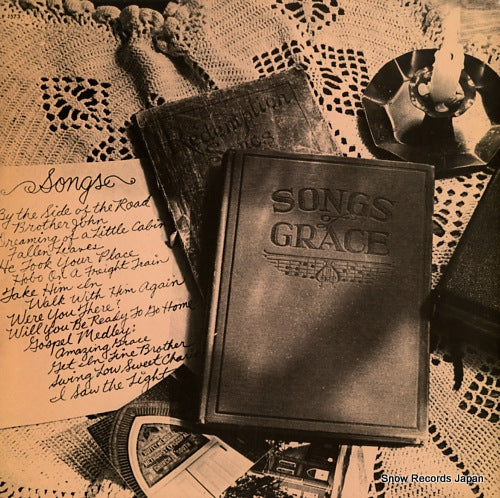 Songs
By the Side of the Road
Brother John
Dreaming of a Little Cabin
Fallen Leaves
He Took Your Place
Hobo On A Freight Train
Take Him In
Walk With Him Again
Were You There?
Will You Be Ready To Go Home
Gospel Medley:
Amazing Grace
Get In Line Brother
Swing Low, Sweet Chariot
I Saw the Light
Redemption
SONGS
of
GRACE
Snow Records Japan